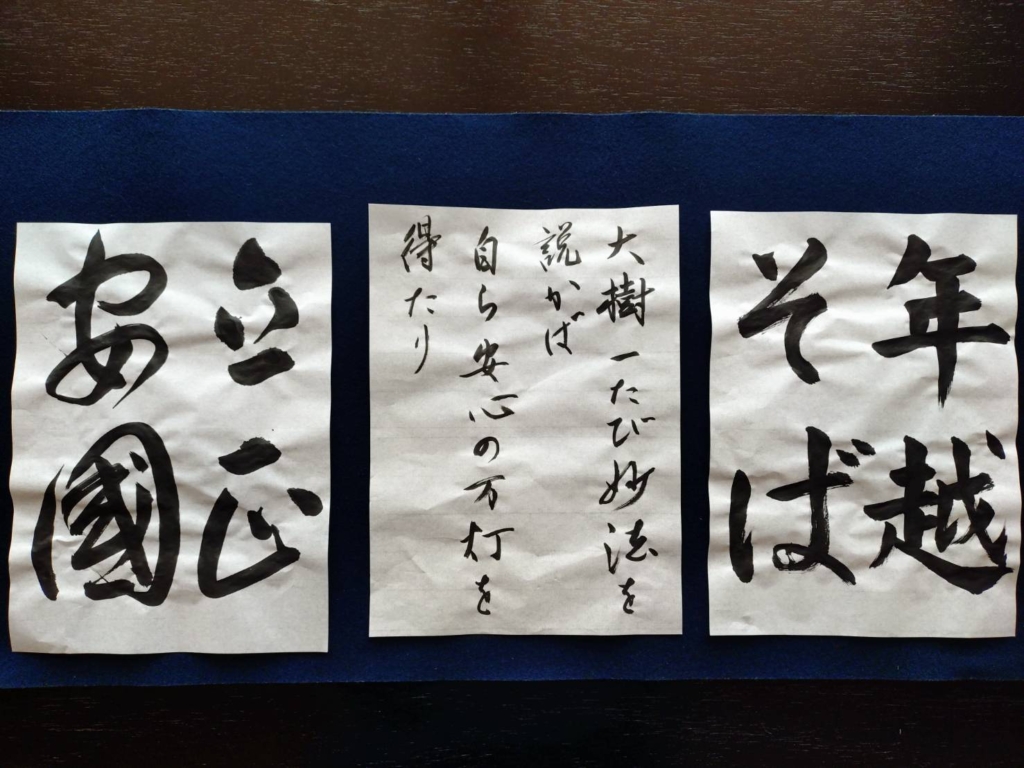 年越
そば
大樹一たび妙法を
説かば
自ら安心の万灯を
得たり
立正
安國